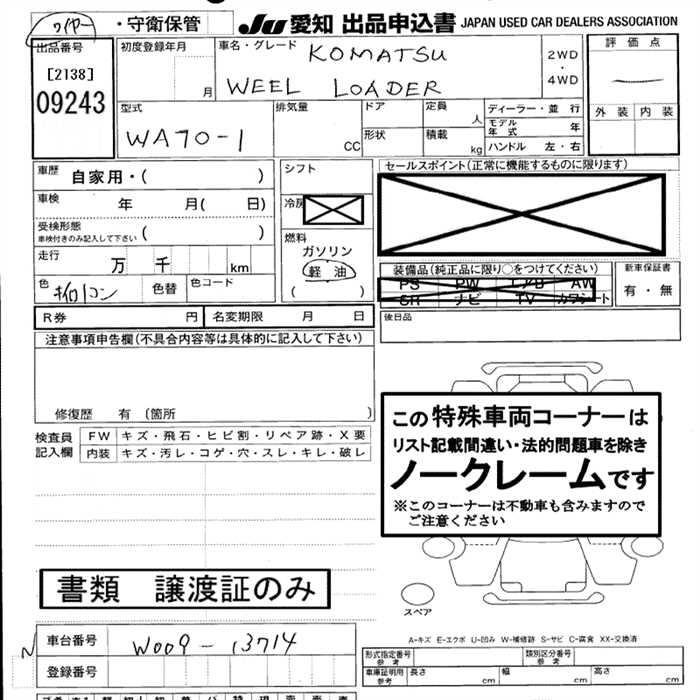 ワイヤー ・守衛保管 JU 愛知 出品申込書 JAPAN USED CAR DEALERS ASSOCIATION
出品番号
[2138]
09243
初度登録年月
月
車名・グレード
KOMATSU
WEEL LOADER
2WD
・
4WD
評価点
外装 内装
型式
WA70-1
排気量
CC
ドア
形状
定員
人
積載
kg
ディーラー・並行
モデル年式 年
ハンドル 左・右
車歴 自家用・( )
車検 年 月( 日)
受検形態
車検付きのみ記入して下さい ( )
走行 万 千 km
色 色替 色コード
シフト
冷房
燃料
ガソリン
軽油
( )
セールスポイント(正常に機能するものに限ります)
装備品(純正品に限り○をつけてください)
PS PW エアB AW
SR ナビ TV カワシート
新車保証書
有・無
後日品
R券 円 名変期限 月 日
注意事項申告欄(不具合内容等は具体的に記入して下さい)
修復歴 有(箇所 )
検査員記入欄
FW キズ・飛石・ヒビ割・リペア跡・X要
内装 キズ・汚レ・コゲ・穴・スレ・キレ・破レ
この特殊車両コーナーは
リスト記載間違い・法的問題車を除き
ノークレームです
※このコーナーは不動車も含みますので
ご注意ください
スペア
書類 譲渡証のみ
A-キズ E-エクボ U-凹み W-補修跡 S-サビ C-腐食 XX-交換済
N
車台番号 W009-13714
登録番号
形式指定番号 参考
類別区分番号 参考
車庫証明用 参考 長さ cm 幅 cm 高さ cm